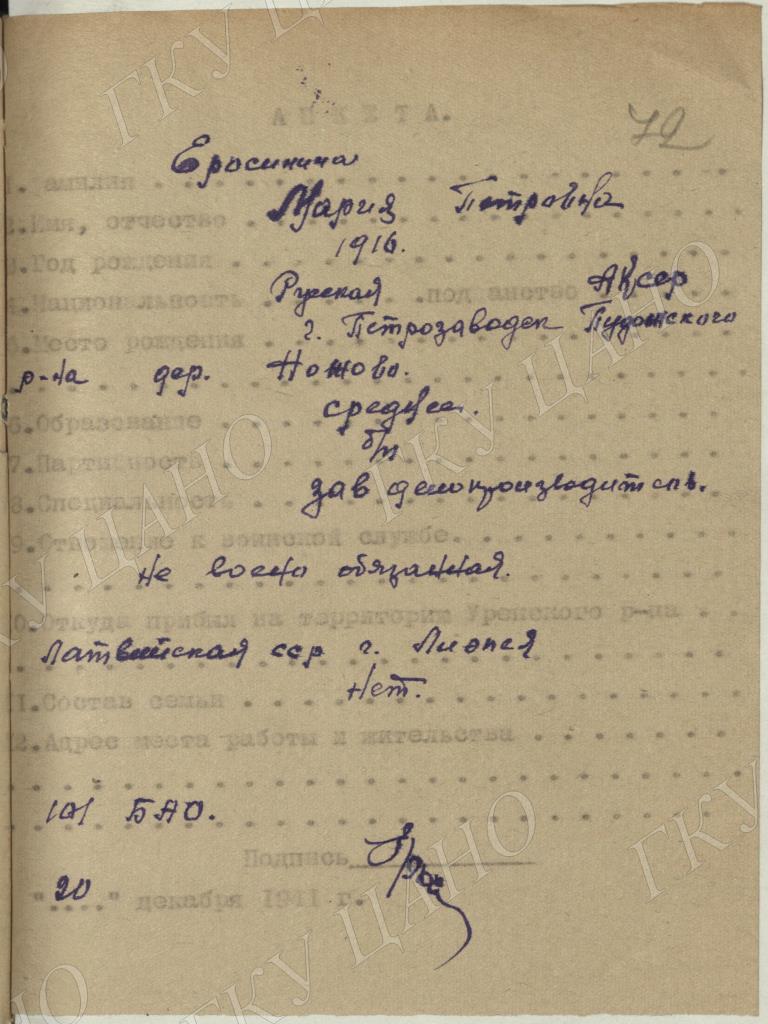 72
АНКЕТА.
Еросинина
1.Фамилия
Мария Петровна
2.Имя, отчество
1916.
3.Год рождения
Русская АКССР
4.Национальность подданство
г. Петрозаводск Пудожского
5.Место рождения
р-на дер. Ножово.
среднее.
6.Образование
б/п
7.Партийность
зав делопроизводитель.
8.Специальность
9.Отношение к воинской службе.
не военно обязанная.
10.Откуда прибыл на территорию Уренского р-на
Латвийская сср г. Лиопея
Нет.
11.Состав семьи
12.Адрес места работы и жительства
101 БАО.
Подпись
20
"...." декабря 1941 г.
ГКУ ЦАНО
ГКУ ЦАНО
ГКУ ЦАНО
ГКУ ЦАНО
ГКУ ЦАНО